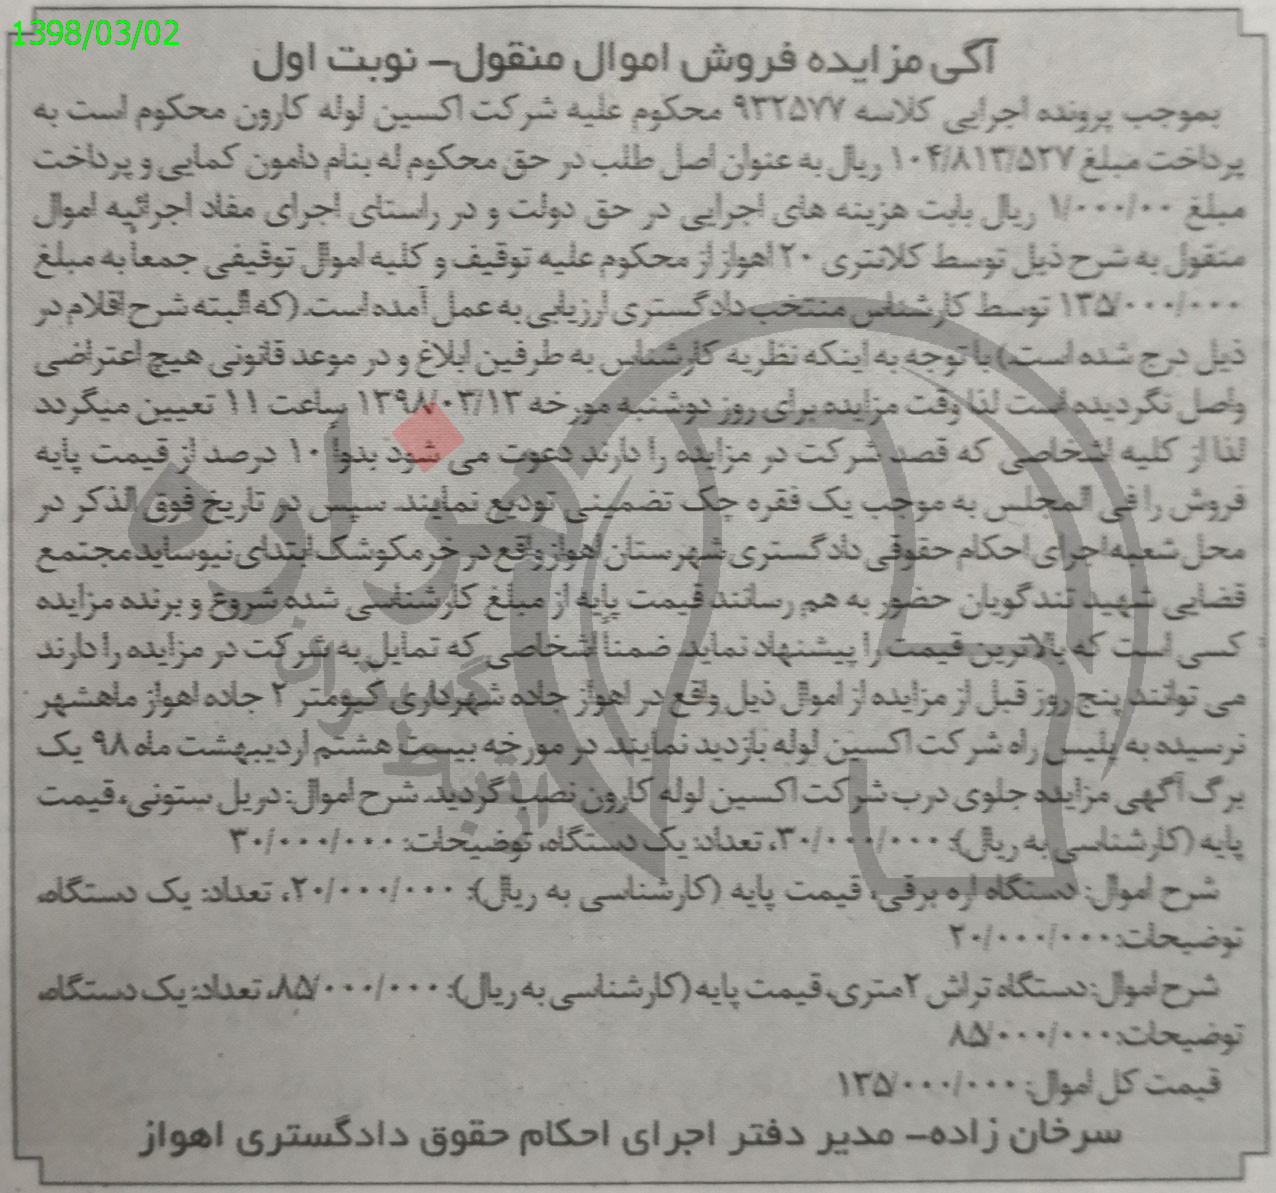 1398/03/02
آگی مزایده فروش اموال منقول- نوبت اول
بموجب پرونده اجرایی کلاسه ۹۳۲۵۷۷ محکوم علیه شرکت اکسین لوله کارون محکوم است به
پرداخت مبلغ ۱۰۴/۸۱۳/۵۲۷ ریال به عنوان اصل طلب در حق محکوم له بنام دامون کمایی و پرداخت
مبلغ ۱/۰۰۰/۰۰ ریال بابت هزینه های اجرایی در حق دولت و در راستای اجرای مفاد اجرائیه اموال
منقول به شرح ذیل توسط کلانتری ۲۰ اهواز از محکوم علیه توقیف و کلیه اموال توقیفی جمعا به مبلغ
۱۳۵/۰۰۰/۰۰۰ توسط کارشناس منتخب دادگستری ارزیابی به عمل آمده است. (که البته شرح اقلام در
ذیل درج شده است.) با توجه به اینکه نظریه کارشناس به طرفین ابلاغ و در موعد قانونی هیچ اعتراضی
واصل نگردیده است لذا وقت مزایده برای روز دوشنبه مورخه ۱۳۹۸/۰۳/۱۳ ساعت ۱۱ تعیین میگردد
لذا از کلیه اشخاصی که قصد شرکت در مزایده را دارند دعوت می شود بدوا ۱۰ درصد از قیمت پایه
فروش را فی المجلس به موجب یک فقره چک تضمینی تودیع نمایند. سپس در تاریخ فوق الذکر در
محل شعبه اجرای احکام حقوقی دادگستری شهرستان اهواز واقع در خرمکوشک ابتدای نیوساید مجتمع
قضایی شهید تندگویان حضور به هم رسانند قیمت پایه از مبلغ کارشناسی شده شروع و برنده مزایده
کسی است که بالاترین قیمت را پیشنهاد نماید. ضمنا اشخاصی که تمایل به شرکت در مزایده را دارند
می توانند پنج روز قبل از مزایده از اموال ذیل واقع در اهواز جاده شهرداری کیومتر ۲ جاده اهواز ماهشهر
نرسیده به پلیس راه شرکت اکسین لوله بازدید نمایند. در مورخه بیست هشتم اردیبهشت ماه ۹۸ یک
برگ آگهی مزایده جلوی درب شرکت اکسین لوله کارون نصب گردید. شرح اموال: دریل ستونی، قیمت
پایه (کارشناسی به ریال): ۳۰/۰۰۰/۰۰۰، تعداد: یک دستگاه، توضیحات: ۳۰/۰۰۰/۰۰۰
شرح اموال: دستگاه اره برقی، قیمت پایه (کارشناسی به ریال): ۲۰/۰۰۰/۰۰۰، تعداد: یک دستگاه،
توضیحات: ۲۰/۰۰۰/۰۰۰
شرح اموال: دستگاه تراش ۲متری، قیمت پایه (کارشناسی به ریال): ۸۵/۰۰۰/۰۰۰، تعداد: یک دستگاه،
توضیحات: ۸۵/۰۰۰/۰۰۰
قیمت کل اموال: ۱۳۵/۰۰۰/۰۰۰
سرخان زاده- مدیر دفتر اجرای احکام حقوق دادگستری اهواز